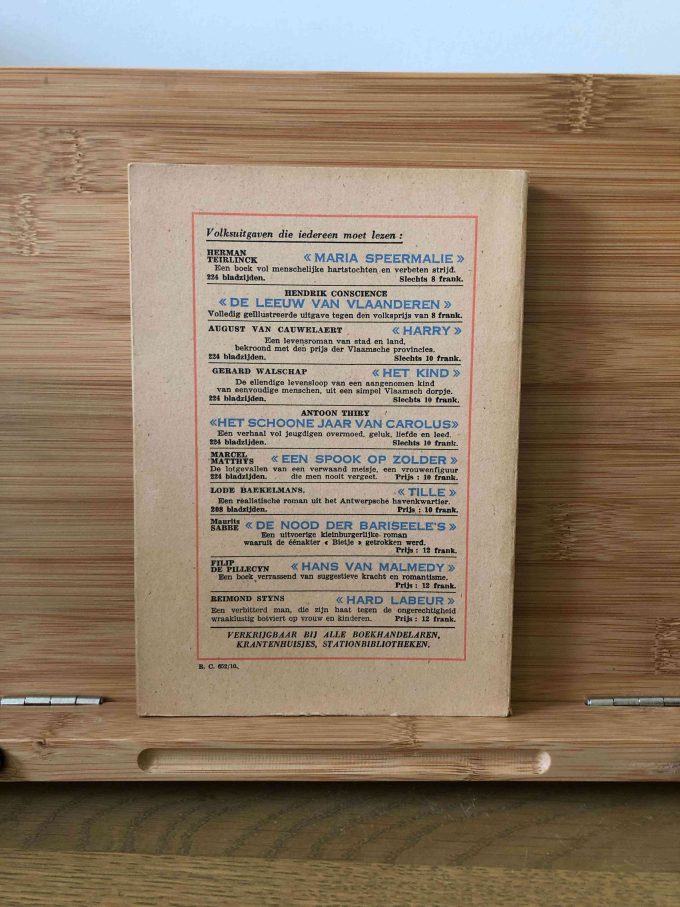 Volksuitgaven die iedereen moet lezen :
HERMAN TEIRLINCK « MARIA SPEERMALIE »
Een boek vol menschelijke hartstochten en verbeten strijd.
224 bladzijden. Slechts 8 frank.
HENDRIK CONSCIENCE
« DE LEEUW VAN VLAANDEREN »
Volledig geïllustreerde uitgave tegen den volksprijs van 8 frank.
AUGUST VAN CAUWELAERT « HARRY »
Een levensroman van stad en land,
bekroond met den prijs der Vlaamsche provincies.
224 bladzijden. Slechts 10 frank.
GERARD WALSCHAP « HET KIND »
De ellendige levensloop van een aangenomen kind
van eenvoudige menschen, uit een simpel Vlaamsch dorpje.
224 bladzijden. Slechts 10 frank.
ANTOON THIRY
«HET SCHOONE JAAR VAN CAROLUS»
Een verhaal vol jeugdigen overmoed, geluk, liefde en leed.
224 bladzijden. Slechts 10 frank.
MARCEL MATTHYS « EEN SPOOK OP ZOLDER »
De lotgevallen van een verwaand meisje, een vrouwenfiguur
224 bladzijden. die men nooit vergeet. Prijs : 10 frank.
LODE BAEKELMANS. « TILLE »
Een realistische roman uit het Antwerpsche havenkwartier.
208 bladzijden. Prijs : 10 frank.
Maurits SABBE « DE NOOD DER BARISEELE'S »
Een uitvoerige kleinburgerlijke roman
waaruit de éénakter « Bietje » getrokken werd.
Prijs : 12 frank.
FILIP DE PILLECYN « HANS VAN MALMEDY »
Een boek verrassend van suggestieve kracht en romantisme.
Prijs : 12 frank.
REIMOND STYNS « HARD LABEUR »
Een verbitterd man, die zijn haat tegen de ongerechtigheid
wraaklustig botviert op vrouw en kinderen. Prijs : 12 frank.
VERKRIJGBAAR BIJ ALLE BOEKHANDELAREN,
KRANTENHUISJES, STATIONBIBLIOTHEKEN.
R. C. 652/10.